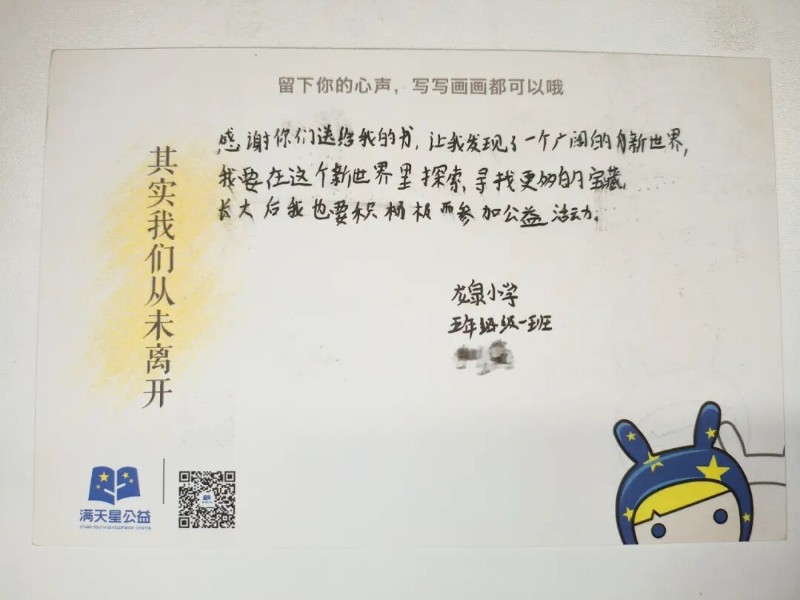 留下你的心声，写写画画都可以哦
感谢你们送给我的书，让我发现了一个广阔的新世界，
我要在这个新世界里探索，寻找更多的宝藏。
长大后我也要积极参加公益活动。
龙泉小学
五年级一班
其实我们从未离开
满天星公益